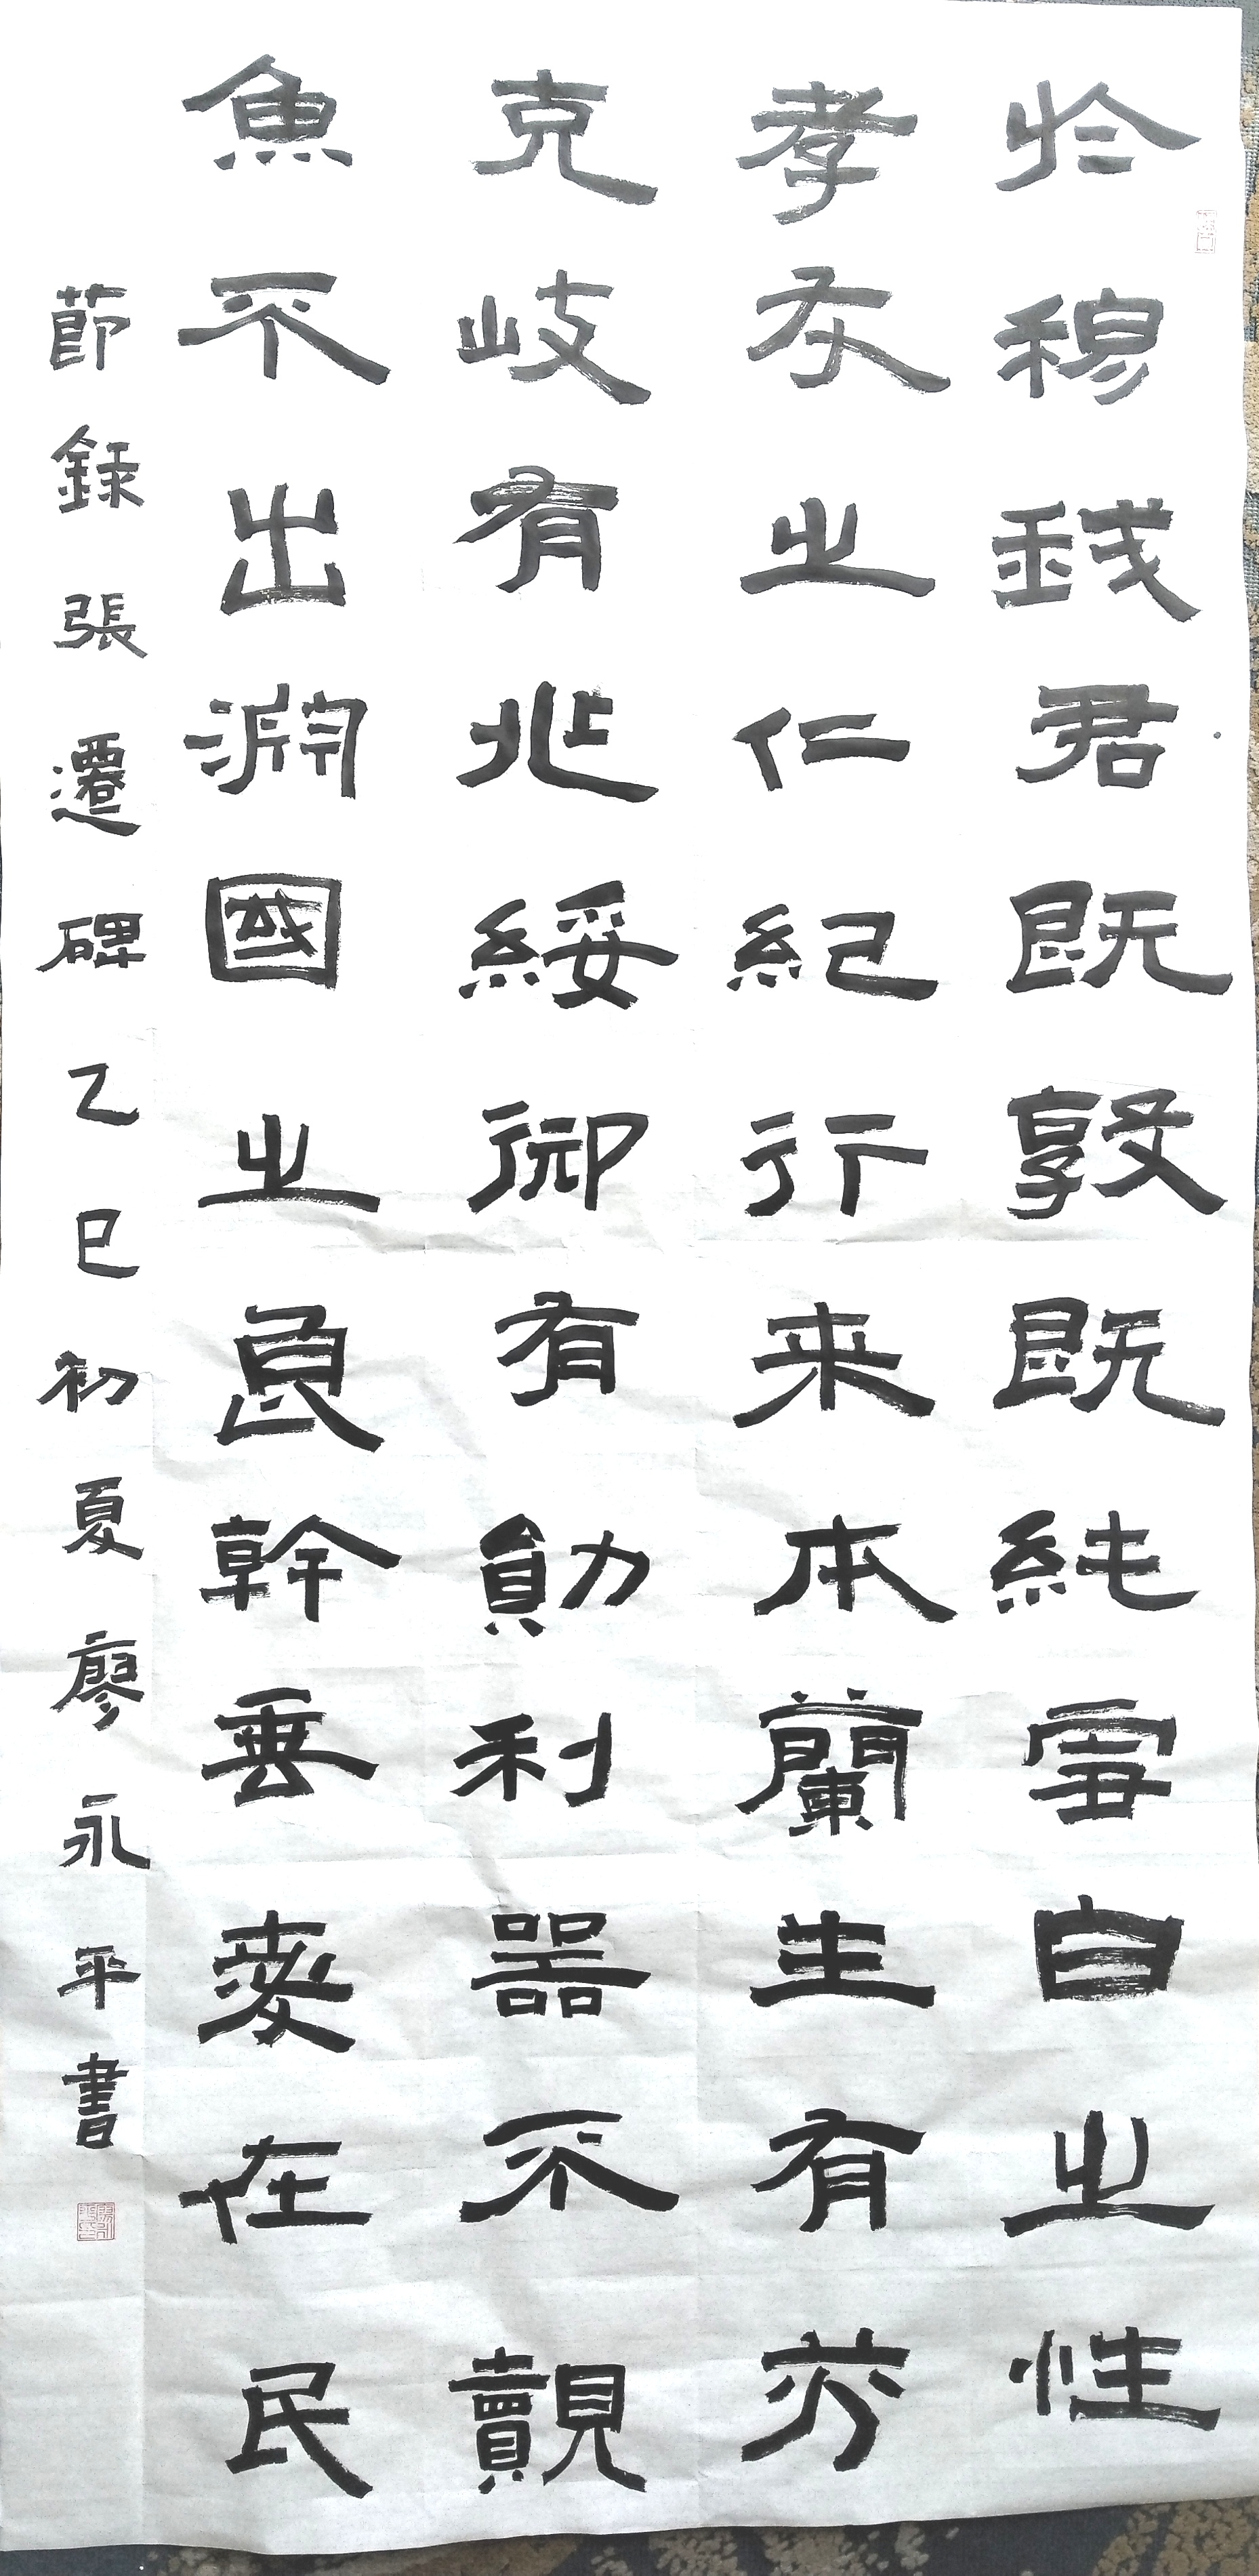 於穆我君既敦既純雪白之性
孝友之仁紀行来本蘭生有芬
克岐有兆綏御有勛利器不覿
魚不出淵國之良幹垂愛在民
節録張遷碑乙巳初夏廖永平書